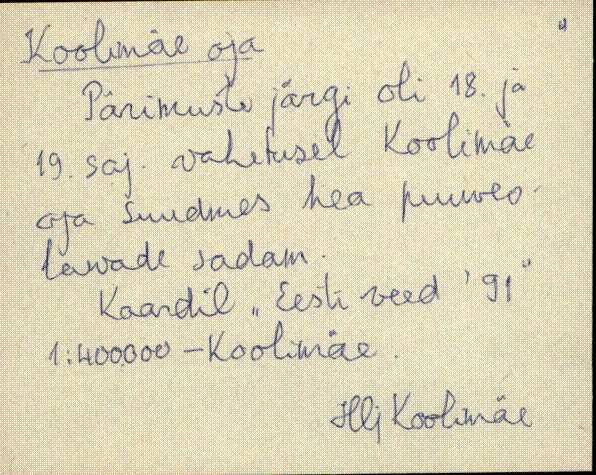 Koolimäe oja
Pärimuste järgi oli 18. ja
19. saj. vahetusel Koolimäe
oja suudmes hea puuveo-
laevade sadam.
Kaardil „Eesti veed '91"
1:400000 – Koolimäe.
Koolimäe